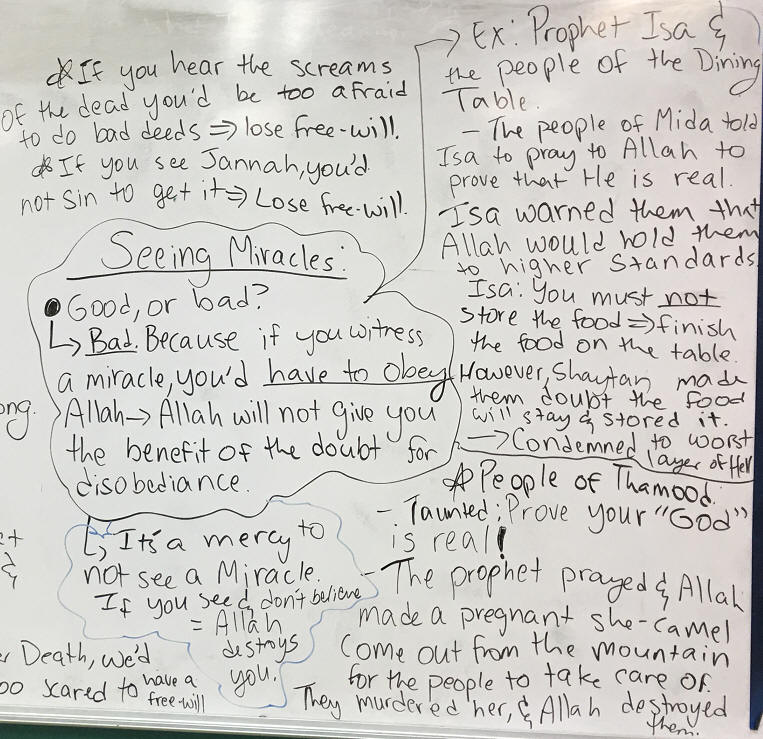 ☆ If you hear the screams
of the dead you'd be too afraid
to do bad deeds ⇒ lose free-will.
☆ If you see Jannah, you'd
not Sin to get it ⇒ Lose free-will.
Seeing Miracles:
● Good, or bad?
↳ Bad. Because if you witness
a miracle, you'd have to obey
Allah → Allah will not give you
the benefit of the doubt for
disobediance.
↳ It's a mercy to
not see a Miracle.
If you see & don't believe
= Allah
destroys
you.
ong.
Death, we'd
scared to have a
free-will
→ Ex: Prophet Isa &
the people of the Dining
Table.
- The people of Mida told
Isa to pray to Allah to
prove that He is real.
Isa warned them that
Allah would hold them
to higher standards
Isa: You must not
store the food ⇒ finish
the food on the table.
However, Shaytan made
them doubt the food
will stay & stored it.
→ Condemned to worst
layer of Hell
☆ People of Thamood.
- Taunted; Prove your "God"
is real!
- The prophet prayed & Allah
made a pregnant she-camel
come out from the mountain
for the people to take care of.
They murdered her, & Allah destroyed
them.